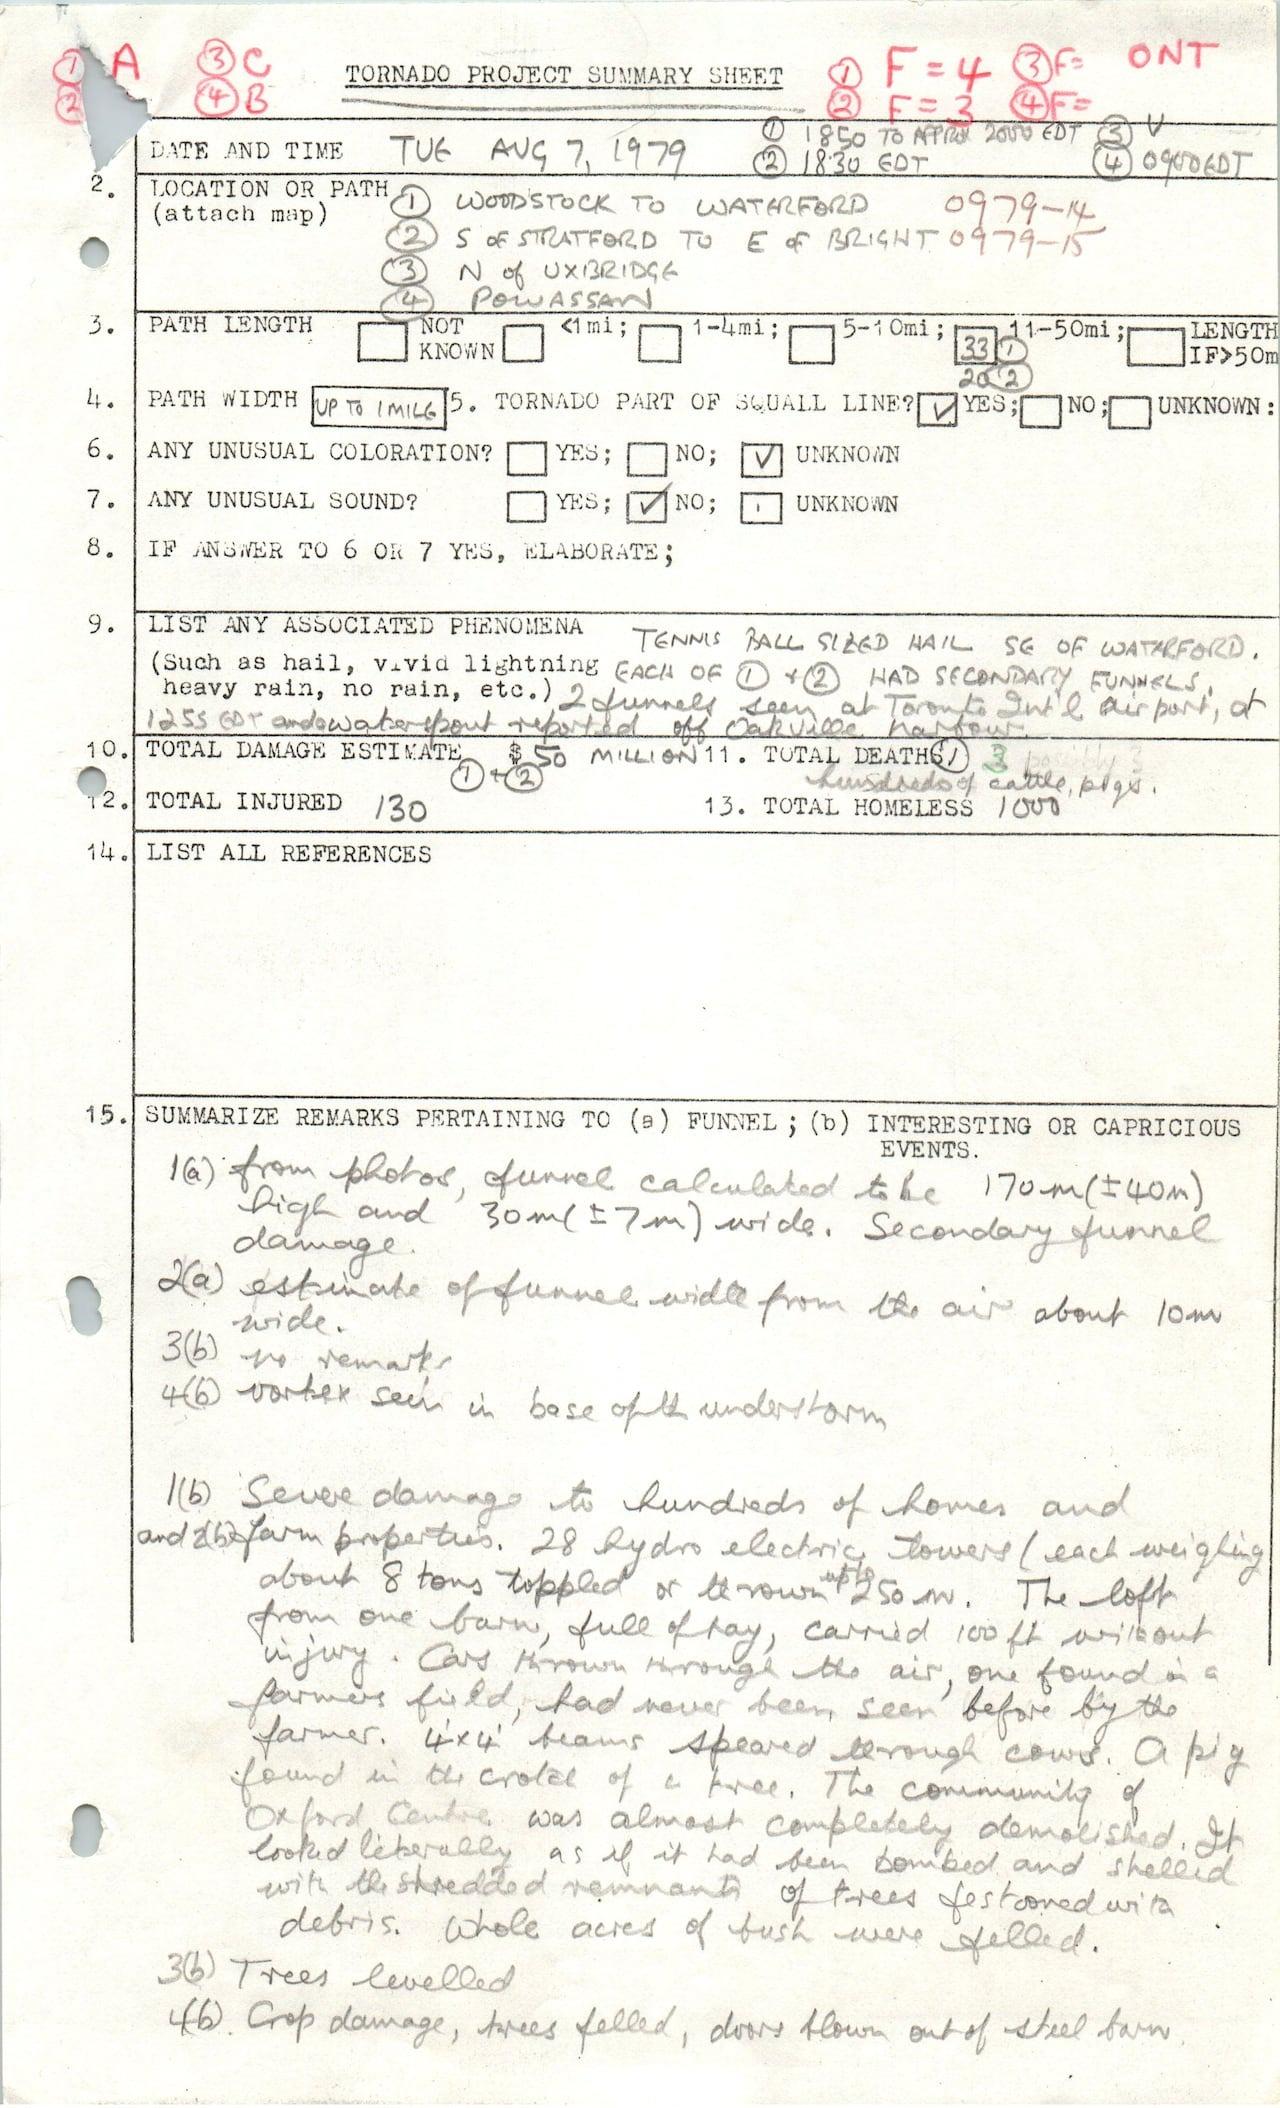 ① A ③ C
② ④ B
TORNADO PROJECT SUMMARY SHEET
① F = 4 ③ F= ONT
② F = 3 ④ F=
DATE AND TIME TUE AUG 7, 1979 ① 1850 TO APPRX 2000 EDT ③ U
② 1830 EDT ④ 0900 EDT
2. LOCATION OR PATH
(attach map)
① WOODSTOCK TO WATERFORD 0979-14
② S of STRATFORD TO E of BRIGHT 0979-15
③ N of UXBRIDGE
④ POWASSAN
3. PATH LENGTH NOT KNOWN <1mi; 1-4mi; 5-10mi; 33 ① 11-50mi; LENGTH IF>50m
20 ②
4. PATH WIDTH UP TO 1 MILE 5. TORNADO PART OF SQUALL LINE? ✓ YES; NO; UNKNOWN:
6. ANY UNUSUAL COLORATION? YES; NO; ✓ UNKNOWN
7. ANY UNUSUAL SOUND? YES; ✓ NO; UNKNOWN
8. IF ANSWER TO 6 OR 7 YES, ELABORATE;
9. LIST ANY ASSOCIATED PHENOMENA TENNIS BALL SIZED HAIL SE OF WATERFORD.
(Such as hail, vivid lightning EACH OF ① + ② HAD SECONDARY FUNNELS.
heavy rain, no rain, etc.) 2 funnels seen at Toronto Int'l Airport, at
1255 EDT and a waterspout reported off Oakville harbour.
10. TOTAL DAMAGE ESTIMATE $50 MILLION 11. TOTAL DEATHS ① 3 possibly 3
① + ② hundreds of cattle, pigs.
12. TOTAL INJURED 130 13. TOTAL HOMELESS 1000
14. LIST ALL REFERENCES
15. SUMMARIZE REMARKS PERTAINING TO (a) FUNNEL; (b) INTERESTING OR CAPRICIOUS
EVENTS.
1(a) from photos, funnel calculated to be 170m (±40m)
high and 30m (±7m) wide. Secondary funnel
damage.
2(a) estimate of funnel width from the air about 10m
wide.
3(b) no remarks
4(b) vortex seen in base of thunderstorm
1(b) Severe damage to hundreds of homes and
and 2(b) farm properties. 28 hydro electric towers (each weighing
about 8 tons toppled or thrown up to 250 m. The loft
from one barn, full of hay, carried 100 ft without
injury. Cars thrown through the air, one found in a
farmers field, had never been seen before by the
farmer. 4'x4' beams speared through cows. A pig
found in the crotch of a tree. The community of
Oxford Centre was almost completely demolished. It
looked literally as if it had been bombed and shelled
with the shredded remnants of trees festooned with
debris. Whole acres of bush were felled.
3(b) Trees levelled
4(b). Crop damage, trees felled, doors blown out of steel barn.